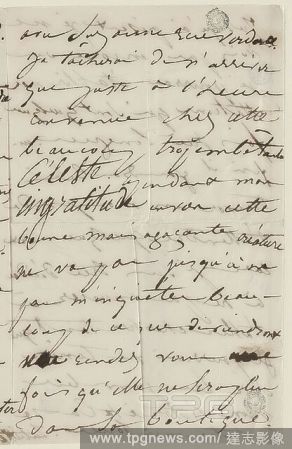 Je tâcherai de n'arriver
que juste à l'heure
convenue chez cette
beaucoup trop embêtante
Céleste. Cependant mon
ingratitude envers cette
bonne mais agaçante créature
ne va pas jusqu'à ne
pas m'inquiéter beau-
coup de ce que deviendront
rendez vous une
fois qu'elle ne sera plus
dans sa boutique
TPG
www.tpgnews.com / 達志影像